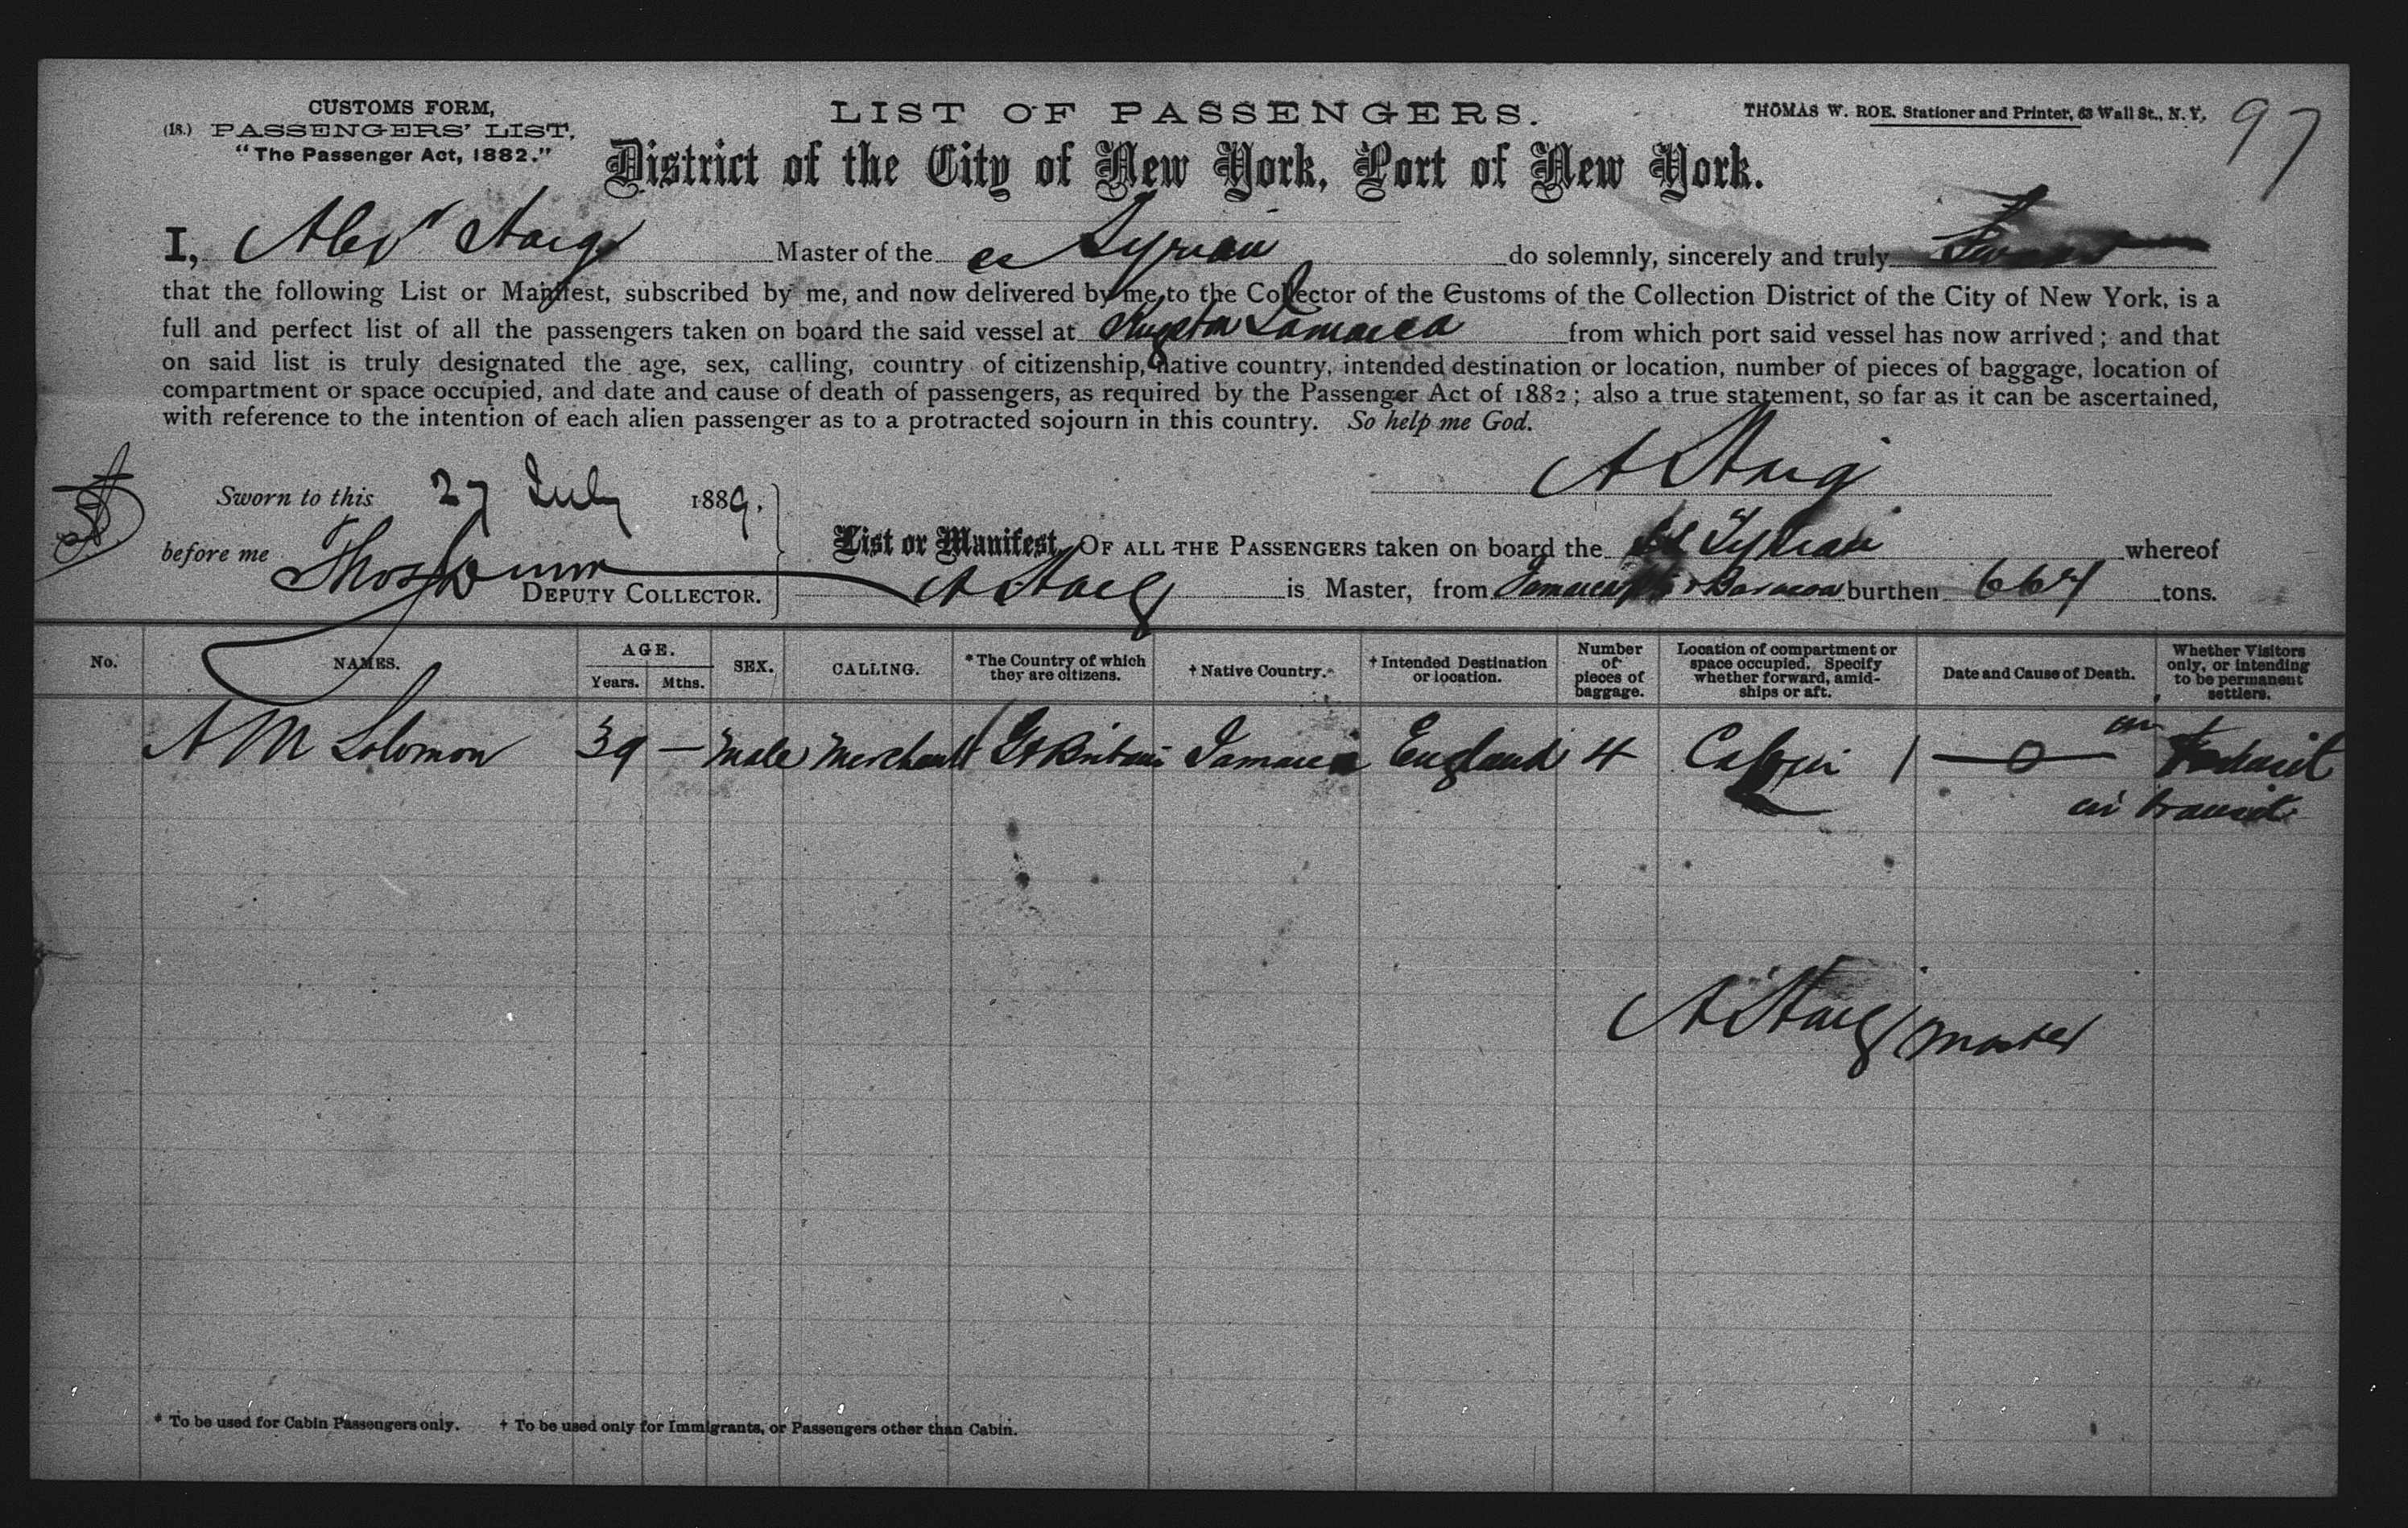 CUSTOMS FORM,
(18.) PASSENGERS' LIST,
"The Passenger Act, 1882."
LIST OF PASSENGERS.
THOMAS W. ROE. Stationer and Printer, 63 Wall St., N. Y.
97
District of the City of New York, Port of New York.
I, Alexr Haig Master of the do solemnly, sincerely and truly Swear
that the following List or Manifest, subscribed by me, and now delivered by me to the Collector of the Customs of the Collection District of the City of New York, is a
full and perfect list of all the passengers taken on board the said vessel at Kingston Jamaica from which port said vessel has now arrived; and that
on said list is truly designated the age, sex, calling, country of citizenship, native country, intended destination or location, number of pieces of baggage, location of
compartment or space occupied, and date and cause of death of passengers, as required by the Passenger Act of 1882; also a true statement, so far as it can be ascertained,
with reference to the intention of each alien passenger as to a protracted sojourn in this country. So help me God.
A Haig
Sworn to this 27 July 1889.
before me Thos Dunn
DEPUTY COLLECTOR.
List or Manifest OF ALL THE PASSENGERS taken on board the whereof
A Haig is Master, from Jamaica & Baracoa burthen 664 tons.
No. NAMES. AGE. Years. Mths. SEX. CALLING. * The Country of which they are citizens. † Native Country. † Intended Destination or location. Number of pieces of baggage. Location of compartment or space occupied. Specify whether forward, amidships or aft. Date and Cause of Death. Whether Visitors only, or intending to be permanent settlers.
A M Solomon 39 — Male Merchant Gt Britain Jamaica England 4 Cabin 1 —0—
in transit
A Haig Master
* To be used for Cabin Passengers only. † To be used only for Immigrants, or Passengers other than Cabin.